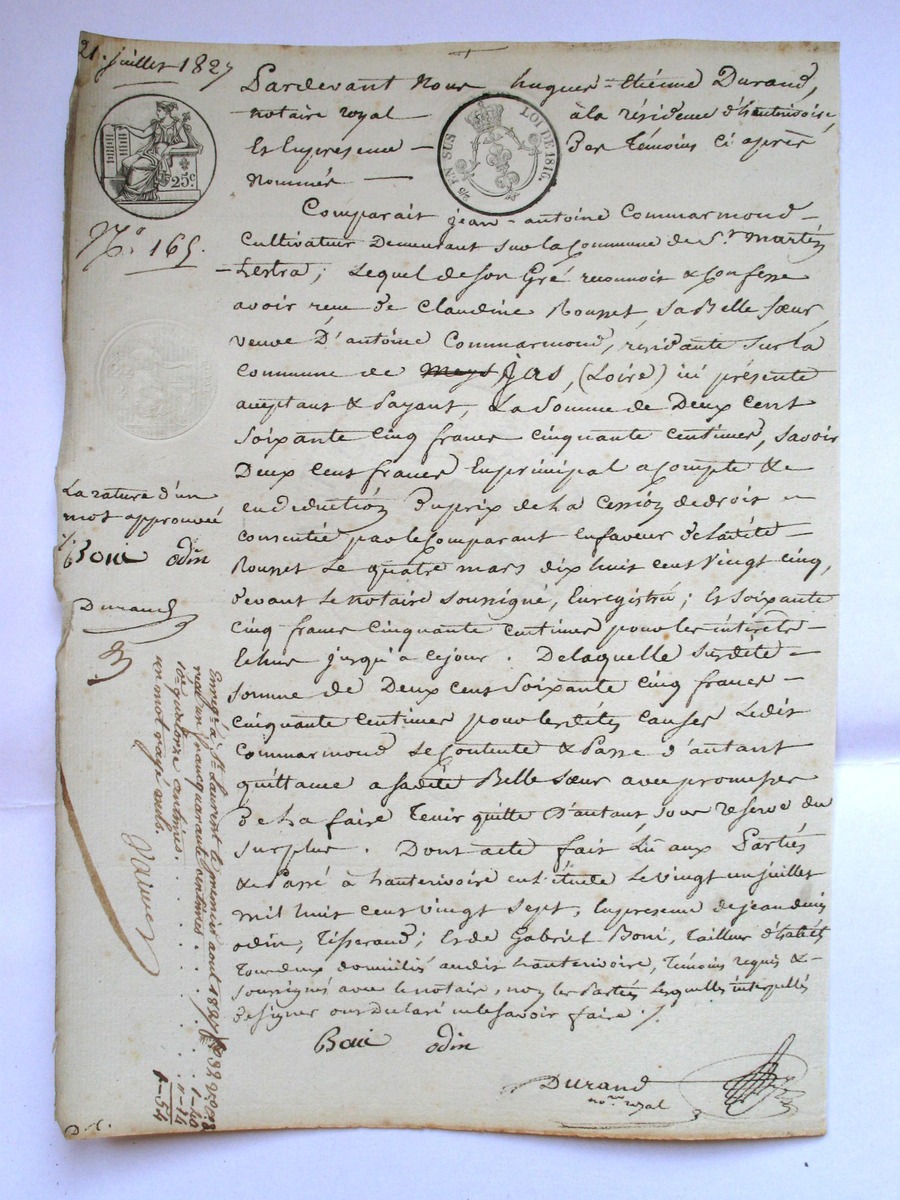 21. juillet 1827
25c.
N.o 165.
Pardevant Nous hugues-Etienne Durand,
notaire royal à la résidence d'hauterivoire
EN SUS
LOI DE 1816.
Et Enpresence Des Témoins Ci après
Nommés
Comparait jean-antoine Commarmond
Cultivateur Demeurant sur la Commune de St. Martin
Lestra; Lequel de son Gré reconnoit & Confesse
avoir reçu de Claudine Rousset, sa Belle sœur,
veuve D'antoine Commarmond, résidante sur la
Commune de Meys Jas, (Loire) ici présente
acceptant & Payant, La Somme de Deux Cent
Soixante Cinq francs Cinquante Centimes, savoir
Deux Cent francs Enprincipal a Compte & e
en déduction Du prix de La Cession de droits
Consentie par le Comparant En faveur de Ladite
Rousset Le quatre mars dix huit Cent Vingt Cinq,
devant Le Notaire soussigné, Enregistrée; Et Soixante
Cinq francs Cinquante Centimes pour les intérêts
Echus jusqu'à cejour. De laquelle susdite
somme de Deux Cent Soixante Cinq francs
Cinquante Centimes pour lesdites Causes Ledit
Commarmond Se Contente & Passe d'autant
quittance a sadite Belle Sœur avec promesse
De La faire Tenir quitte D'autant sous reserve du
surplus. Dont acte fait Lu aux Parties
& Passé à hauterivoire en L'étude Le Vingt un juillet
mil huit Cent Vingt Sept, En presence de jean denis
odin, Tisserand; Et de Gabriel Boni, Tailleur d'habits
Tous deux domiciliés audit hauterivoire, Témoins requis &
soussignés avec le notaire, non les Parties Lesquelles interpellés
de signer ont Declaré ne le savoir faire ./.
Boni odin
Durand
nore. royal
La rature d'un
mot approuvée
./.
Boni odin
Durand
Enregé. à St. Laurent le premier aout 1827 f° 32 v° c. 8
reçu un franc quarante centimes
dixe. quatorze centimes.
un mot rayé nul.
1-40
"-14
1-54